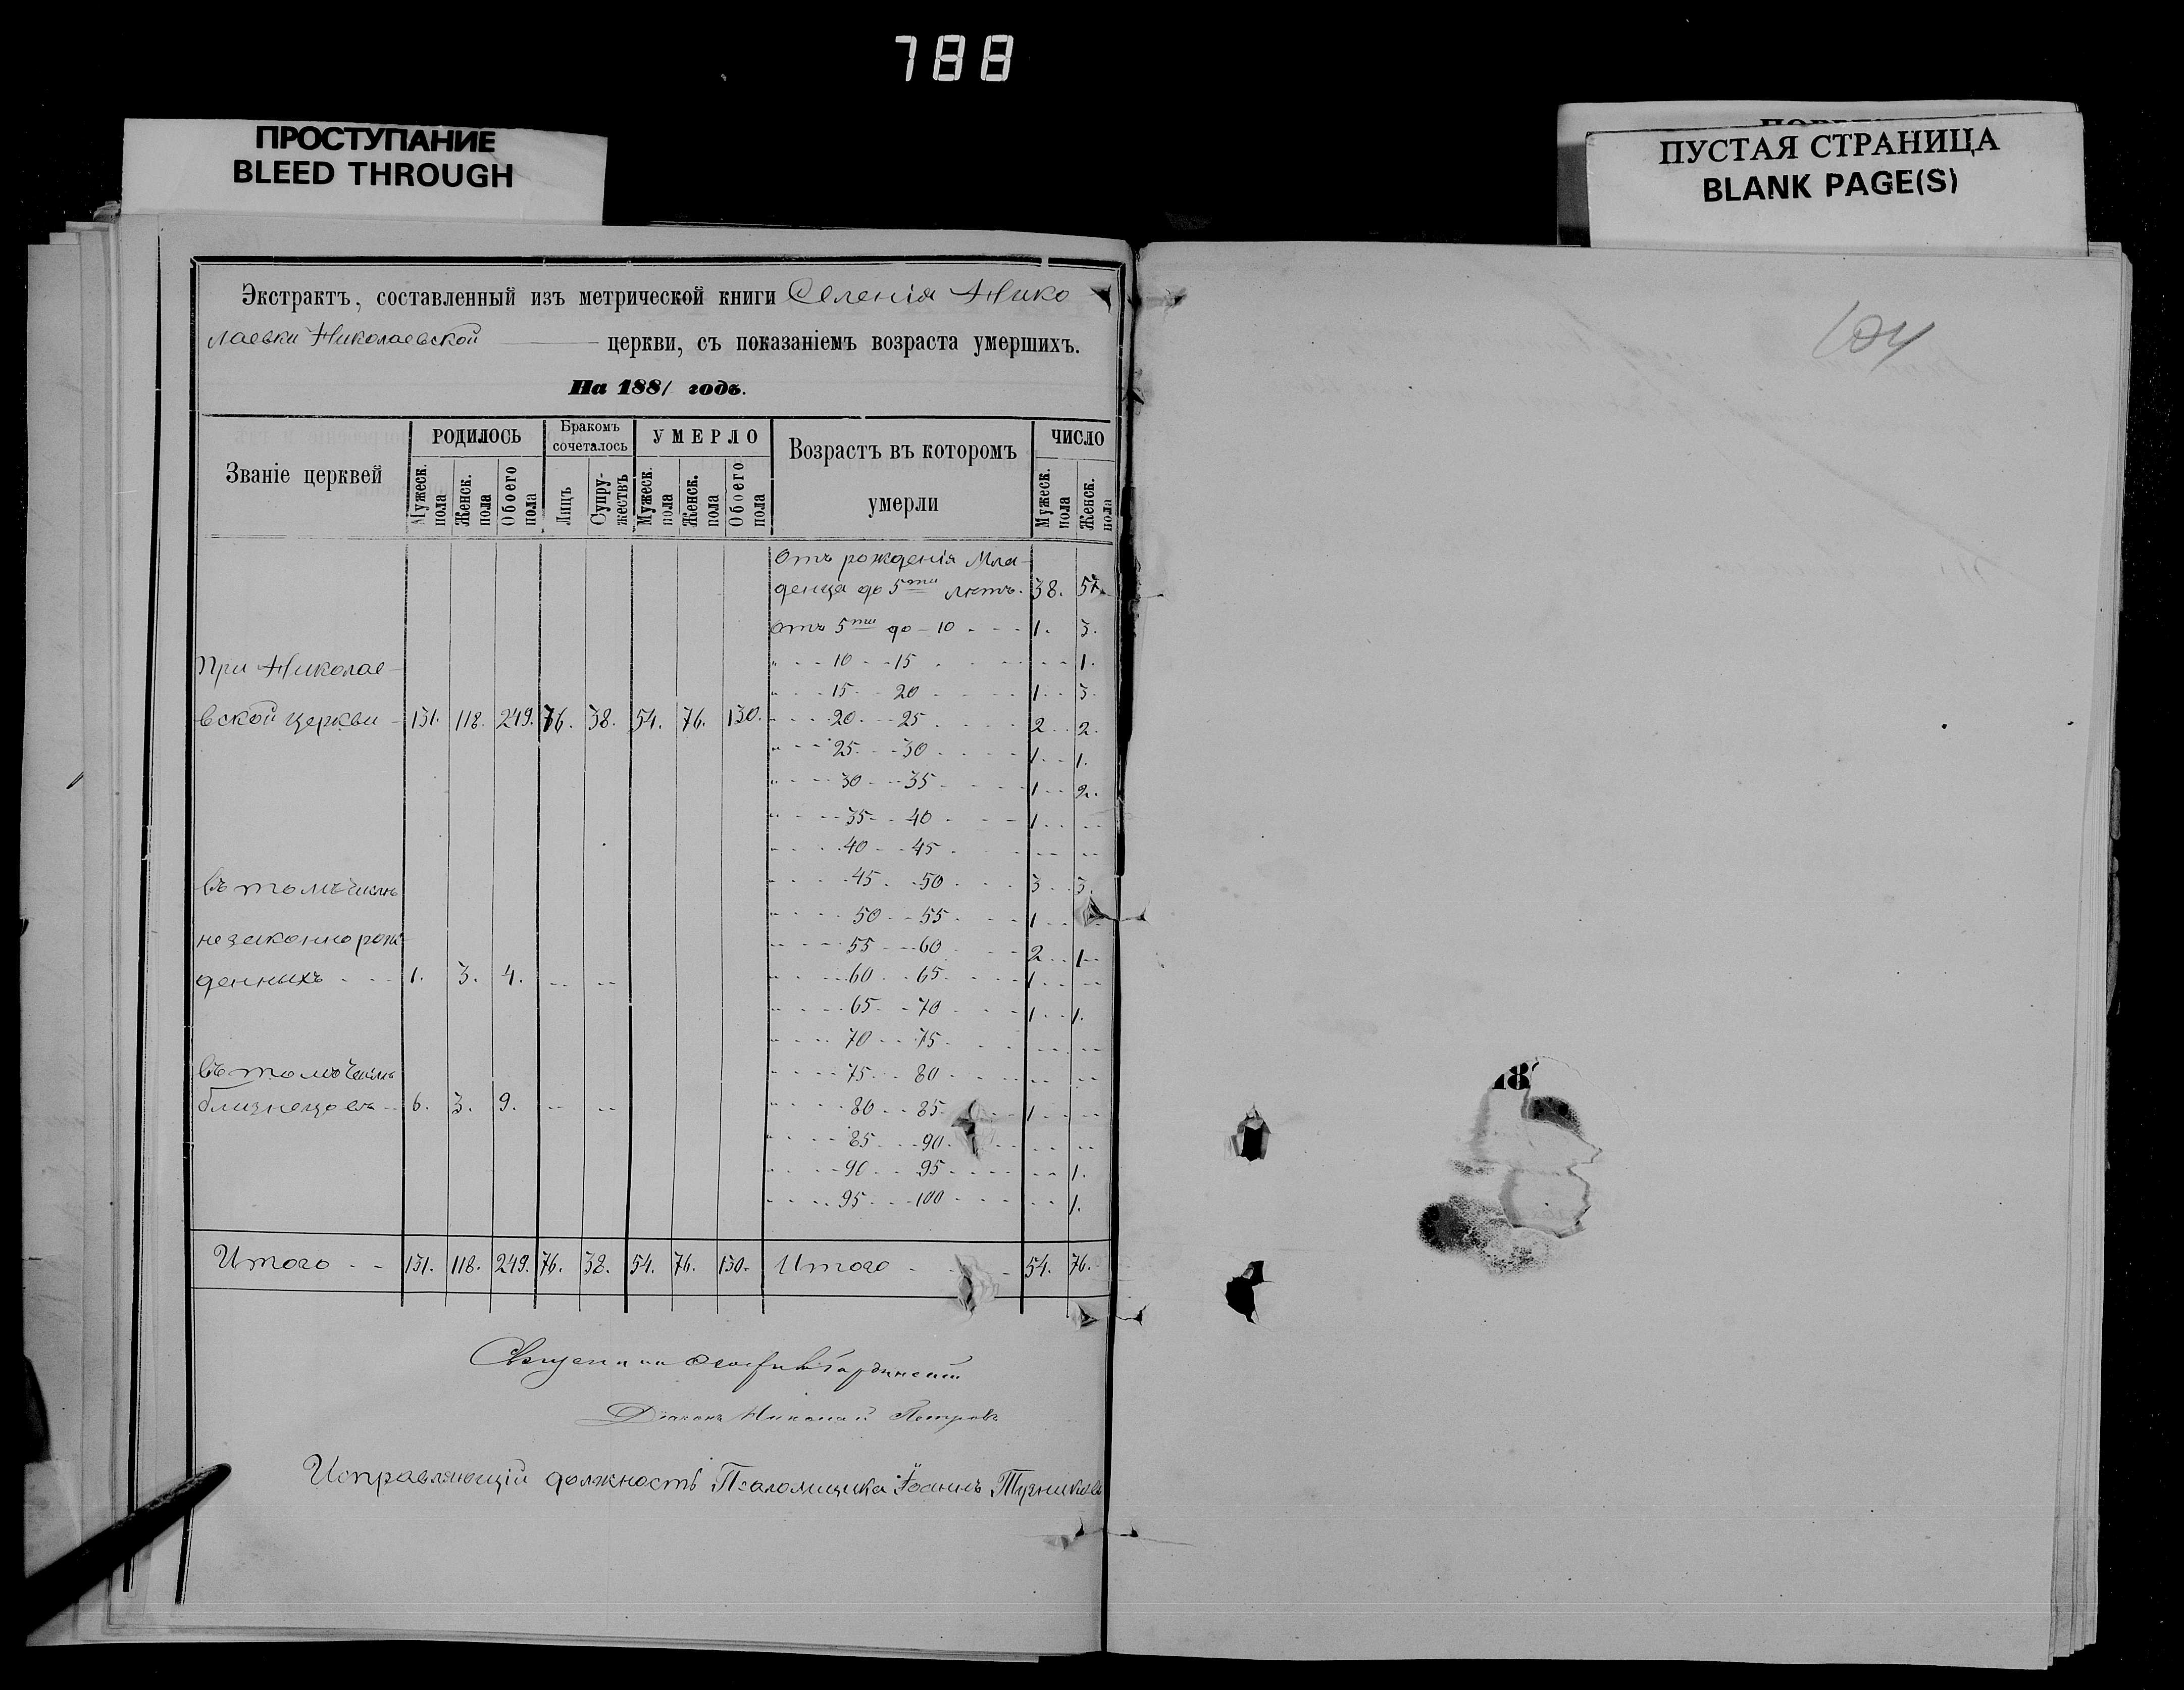 788
ПРОСТУПАНИЕ
BLEED THROUGH
ПУСТАЯ СТРАНИЦА
BLANK PAGE(S)
Экстрактъ, составленный изъ метрической книги Селенія Нико
лаевки Николаевской церкви, съ показаніемъ возраста умершихъ.
На 1881 годъ.
Званіе церквей
РОДИЛОСЬ
Бракомъ сочеталось
УМЕРЛО
Возрастъ въ которомъ умерли
ЧИСЛО
Мужеск. пола Женск. пола Обоего пола Лицъ Супружествъ Мужеск. пола Женск. пола Обоего пола Мужеск. пола Женск. пола
Отъ рожденія Мла-
денца до 5ти лѣтъ. 38. 57.
Отъ 5ти до - 10 - - - 1. 3.
При Николае-
" - - 10 - - 15 - - 1.
" - - 15 - - 20 - - 1. 3.
вской церкви - 131. 118. 249. 76. 38. 54. 76. 130. " - - 20 - - 25 - - 2. 2.
" - - 25 - - 30 - - 1. 1.
" - - 30 - - 35 - - 1. 2.
" - - 35 - - 40 - - 1. --
" - - 40 - - 45 - - -- --
въ томъ числѣ
" - - 45 - - 50 - - 3. 3.
" - - 50 - - 55 - - 1.
незаконнорож-
" - - 55 - - 60 - - 2. 1.
денныхъ - - 1. 3. 4. -- -- " - - 60 - - 65 - - 1. --
" - - 65 - - 70 - - 1. 1.
" - - 70 - - 75 - - -- --
въ томъ числѣ
" - - 75 - - 80 - - -- --
близнецовъ - 6. 3. 9. -- -- " - - 80 - - 85 - - 1. --
" - - 85 - - 90 - - -- --
" - - 90 - - 95 - - -- 1.
" - - 95 - - 100 - - -- 1.
Итого - - 131. 118. 249. 76. 38. 54. 76. 130. Итого - - 54. 76.
Діаконъ Николай Петровъ
Исправляющій должность Псаломщика Іоаннъ
18